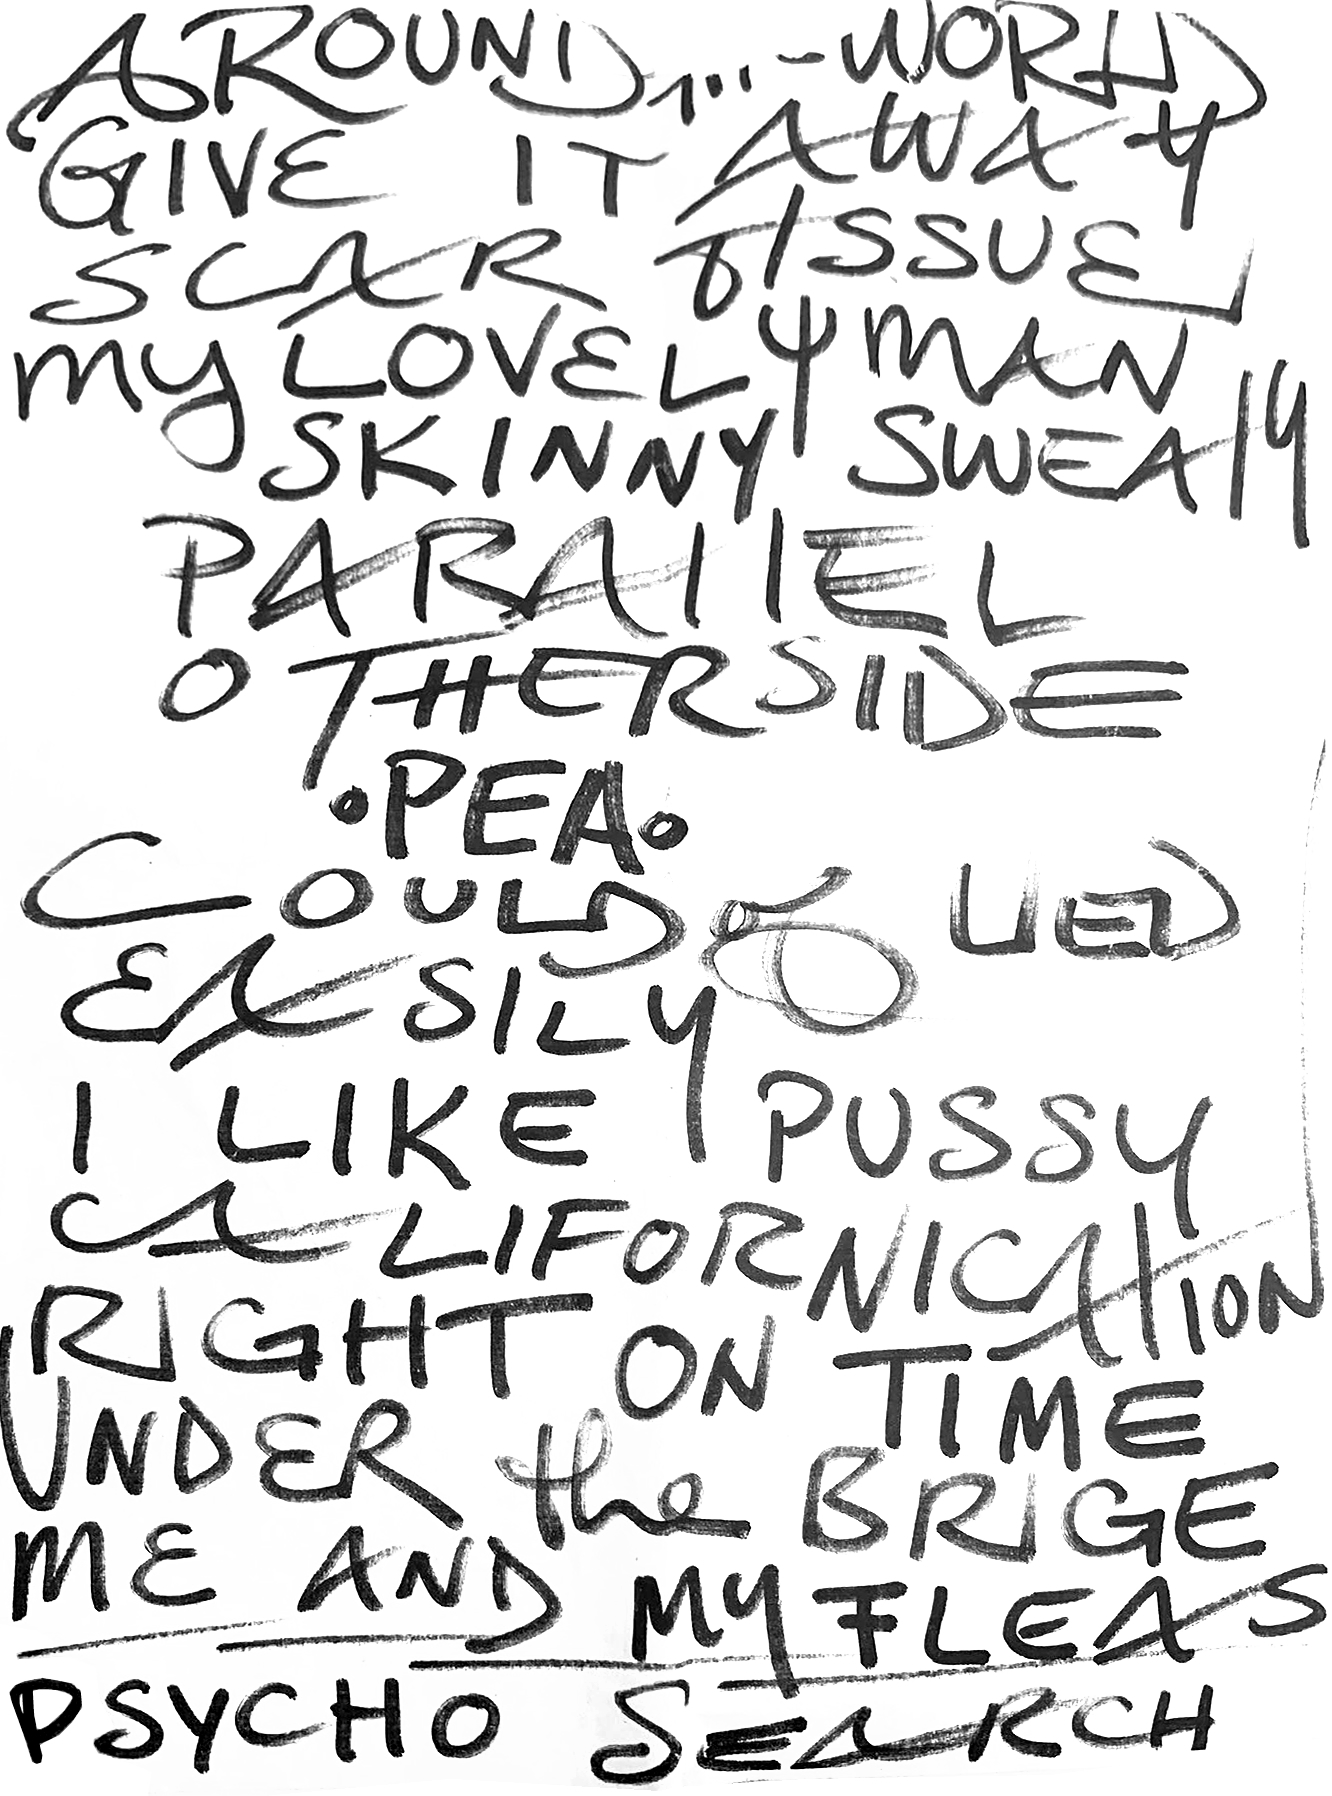 AROUND...-WORLD
GIVE IT AWAY
SCAR TISSUE
MY LOVELY MAN
SKINNY SWEATY
PARALLEL
OTHERSIDE
•PEA•
COULD LIED
EASILY
I LIKE PUSSY
CALIFORNICATION
RIGHT ON TIME
UNDER the BRIGE
ME AND MY FLEAS
PSYCHO SEARCH